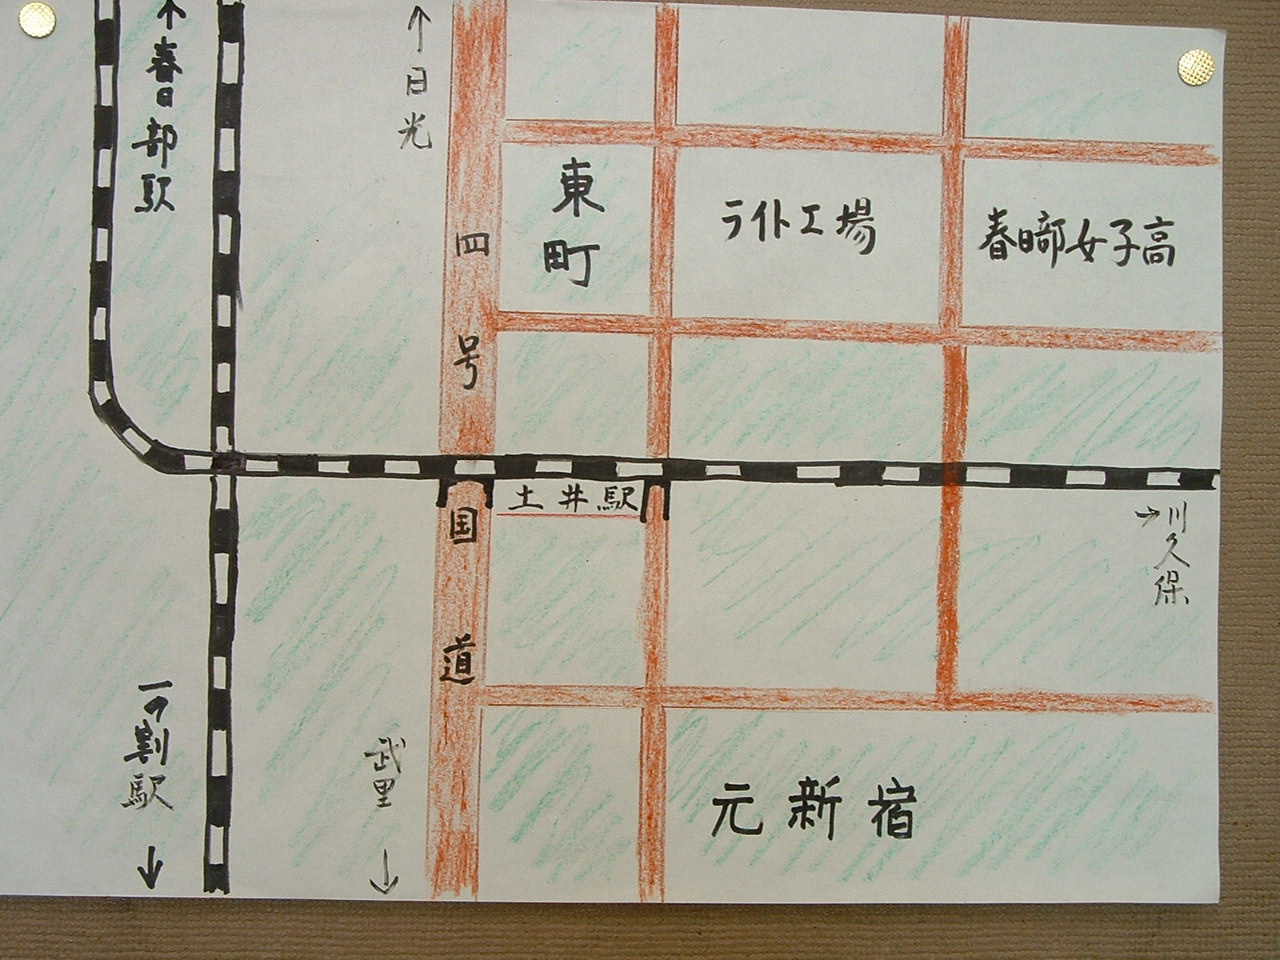 ↑春日部駅
↑日光
東町
ライト工場
春日部女子高
四号国道
土井駅
→川久保
一ノ割駅↓
武里↓
元新宿